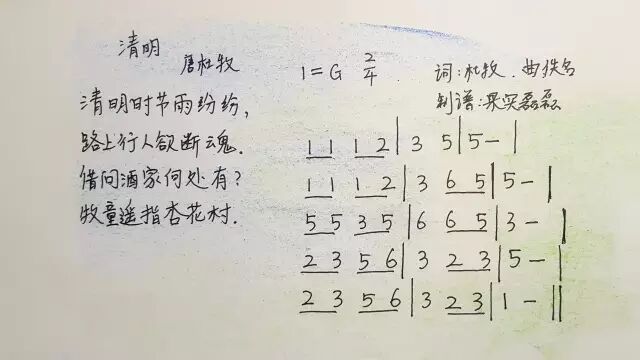 清明
唐杜牧
清明时节雨纷纷,
路上行人欲断魂.
借问酒家何处有?
牧童遥指杏花村.
1=G 2/4 词:杜牧.曲佚名
制谱:果实磊磊
1 1 1 2 | 3 5 | 5 - |
1 1 1 2 | 3 6 5 | 5 - |
5 5 3 5 | 6 6 5 | 3 - |
2 3 5 6 | 3 2 3 | 5 - |
2 3 5 6 | 3 2 3 | 1 - ||